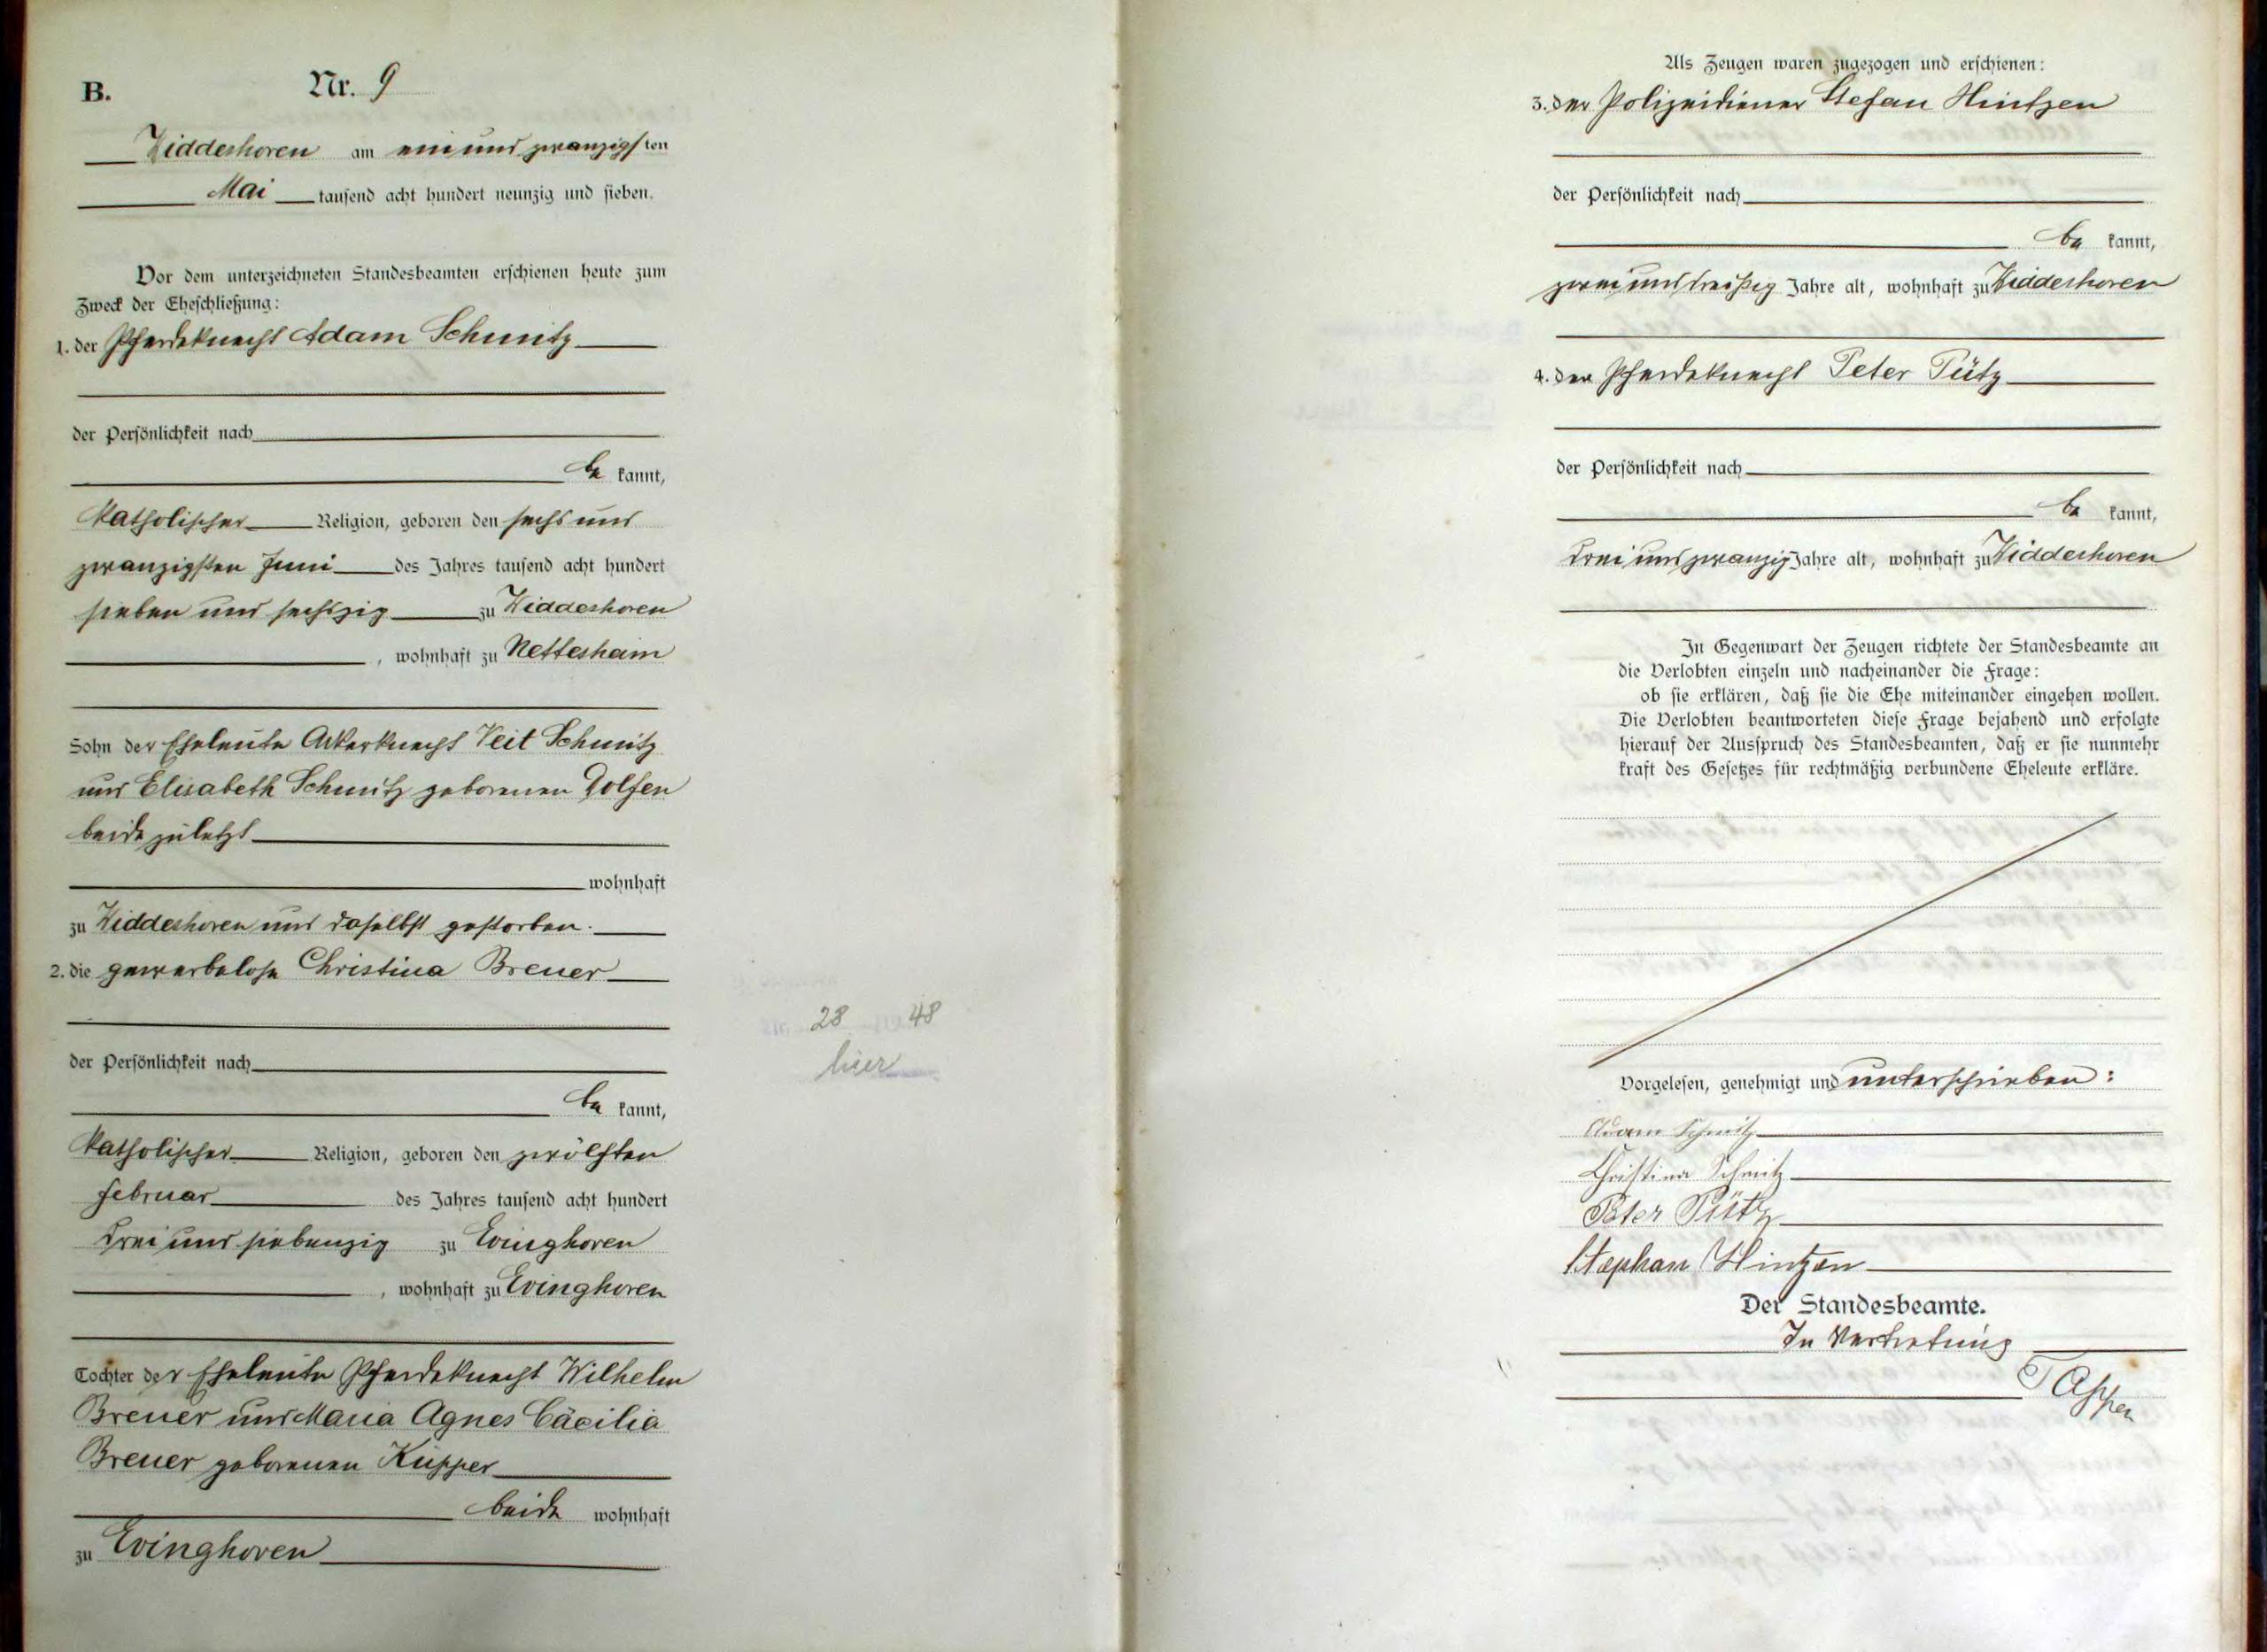 B. Nr. 9
Widdeshoven am ein und zwanzigsten
Mai tausend acht hundert neunzig und sieben.
Vor dem unterzeichneten Standesbeamten erschienen heute zum
Zweck der Eheschließung:
1. der Pferdeknecht Adam Schmitz
der Persönlichkeit nach
be kannt,
katholischer Religion, geboren den sechs und
zwanzigsten Juni des Jahres tausend acht hundert
sieben und sechszig zu Widdeshoven
, wohnhaft zu Nettesheim
Sohn der Eheleute Ackerknecht Veit Schmitz
und Elisabeth Schmitz geborenen Dolfen
beide zuletzt
wohnhaft
zu Widdeshoven und daselbst gestorben.
2. die gewerbelose Christina Breuer
der Persönlichkeit nach
be kannt,
katholischer Religion, geboren den zwölften
Februar des Jahres tausend acht hundert
drei und siebenzig zu Evinghoven
, wohnhaft zu Evinghoven
Tochter der Eheleute Pferdeknecht Wilhelm
Breuer und Maria Agnes Cäcilia
Breuer geborenen Küpper
beide wohnhaft
zu Evinghoven
28 48
hier
Als Zeugen waren zugezogen und erschienen:
3. der Polizeidiener Stefan Hintzen
der Persönlichkeit nach
be kannt,
zwei und dreißig Jahre alt, wohnhaft zu Widdeshoven
4. der Pferdeknecht Peter Pütz
der Persönlichkeit nach
be kannt,
drei und zwanzig Jahre alt, wohnhaft zu Widdeshoven
In Gegenwart der Zeugen richtete der Standesbeamte an
die Verlobten einzeln und nacheinander die Frage:
ob sie erklären, daß sie die Ehe miteinander eingehen wollen.
Die Verlobten beantworteten diese Frage bejahend und erfolgte
hierauf der Ausspruch des Standesbeamten, daß er sie nunmehr
kraft des Gesetzes für rechtmäßig verbundene Eheleute erkläre.
Vorgelesen, genehmigt und unterschrieben:
Adam Schmitz
Christina Schmitz
Peter Pütz
Stephan Hintzen
Der Standesbeamte.
In Vertretung